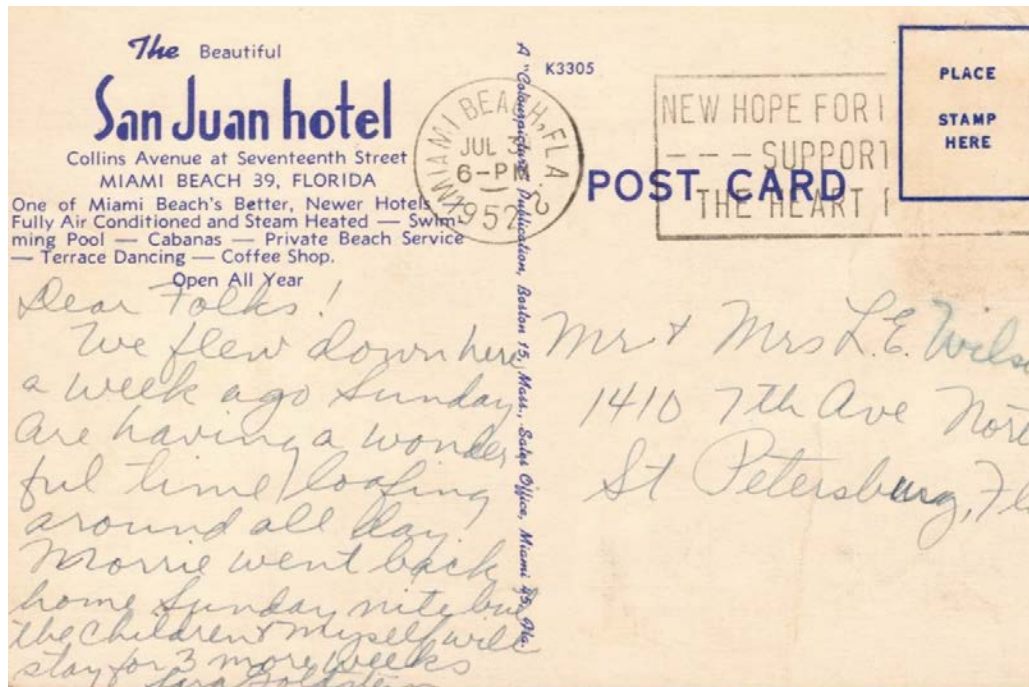 The Beautiful
San Juan hotel
Collins Avenue at Seventeenth Street
MIAMI BEACH 39, FLORIDA
One of Miami Beach's Better, Newer Hotels —
Fully Air Conditioned and Steam Heated — Swim-
ming Pool — Cabanas — Private Beach Service
— Terrace Dancing — Coffee Shop.
Open All Year
Dear Folks!
We flew down here
a week ago Sunday
are having a wonder
ful time loafing
around all day.
Morrie went back
home Sunday nite but
the children & myself will
stay for 3 more weeks
Sara Goldstein
A "Colourpicture" Publication, Boston 15, Mass., Sales Office, Miami 45, Fla.
K3305
MIAMI BEACH, FLA.
JUL
6-PM
1952
NEW HOPE FOR
--- SUPPORT
THE HEART
PLACE
STAMP
HERE
POST CARD
Mr & Mrs L.E. Wils
1410 7th Ave Nort
St Petersburg, Fl